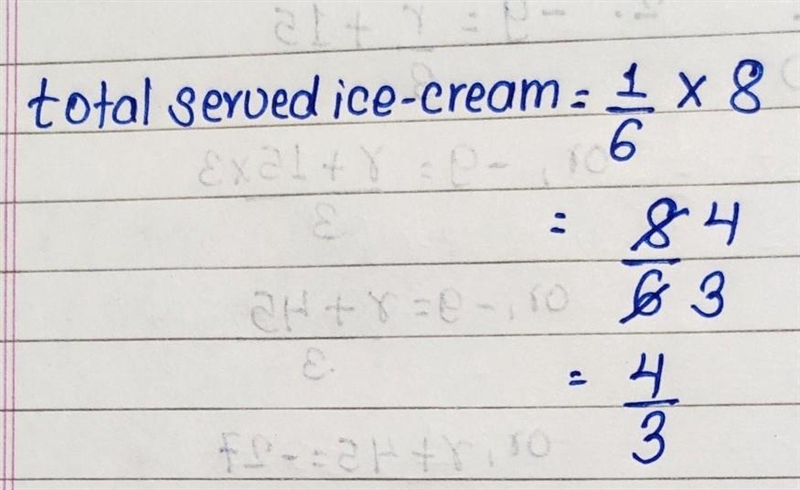 total served ice-cream = 1/6 × 8
= 8/6 4/3
= 4/3